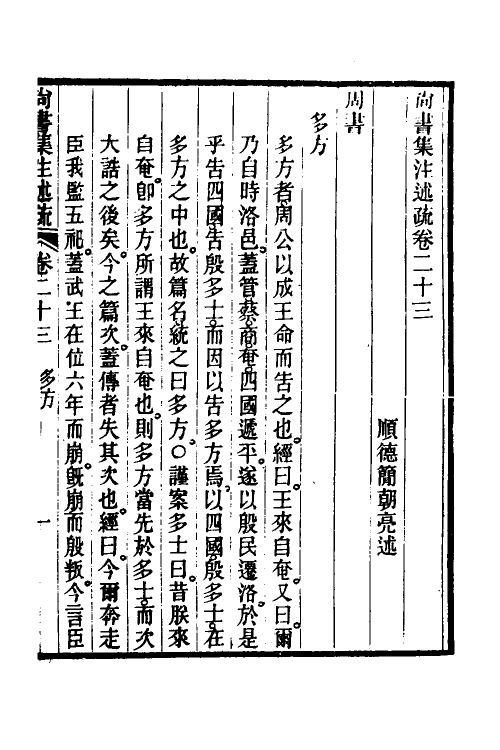 尚書集注述疏卷二十三
順德簡朝亮述
周書
多方
多方者周公以成王命而告之也經曰王來自奄又曰爾
乃自時洛邑蓋管蔡商奄四國遞平遂以殷民遷洛於是
乎告四國告殷多士而因以告多方焉以四國殷多士在
多方之中也故篇名統之曰多方○謹案多士曰昔朕來
自奄卽多方所謂王來自奄也則多方當先於多士而次
大誥之後矣今之篇次蓋傳者失其次也經曰今爾奔走
臣我監五祀蓋武王在位六年而崩旣崩而殷叛今言臣
尚書集注述疏 卷二十三 多方 一